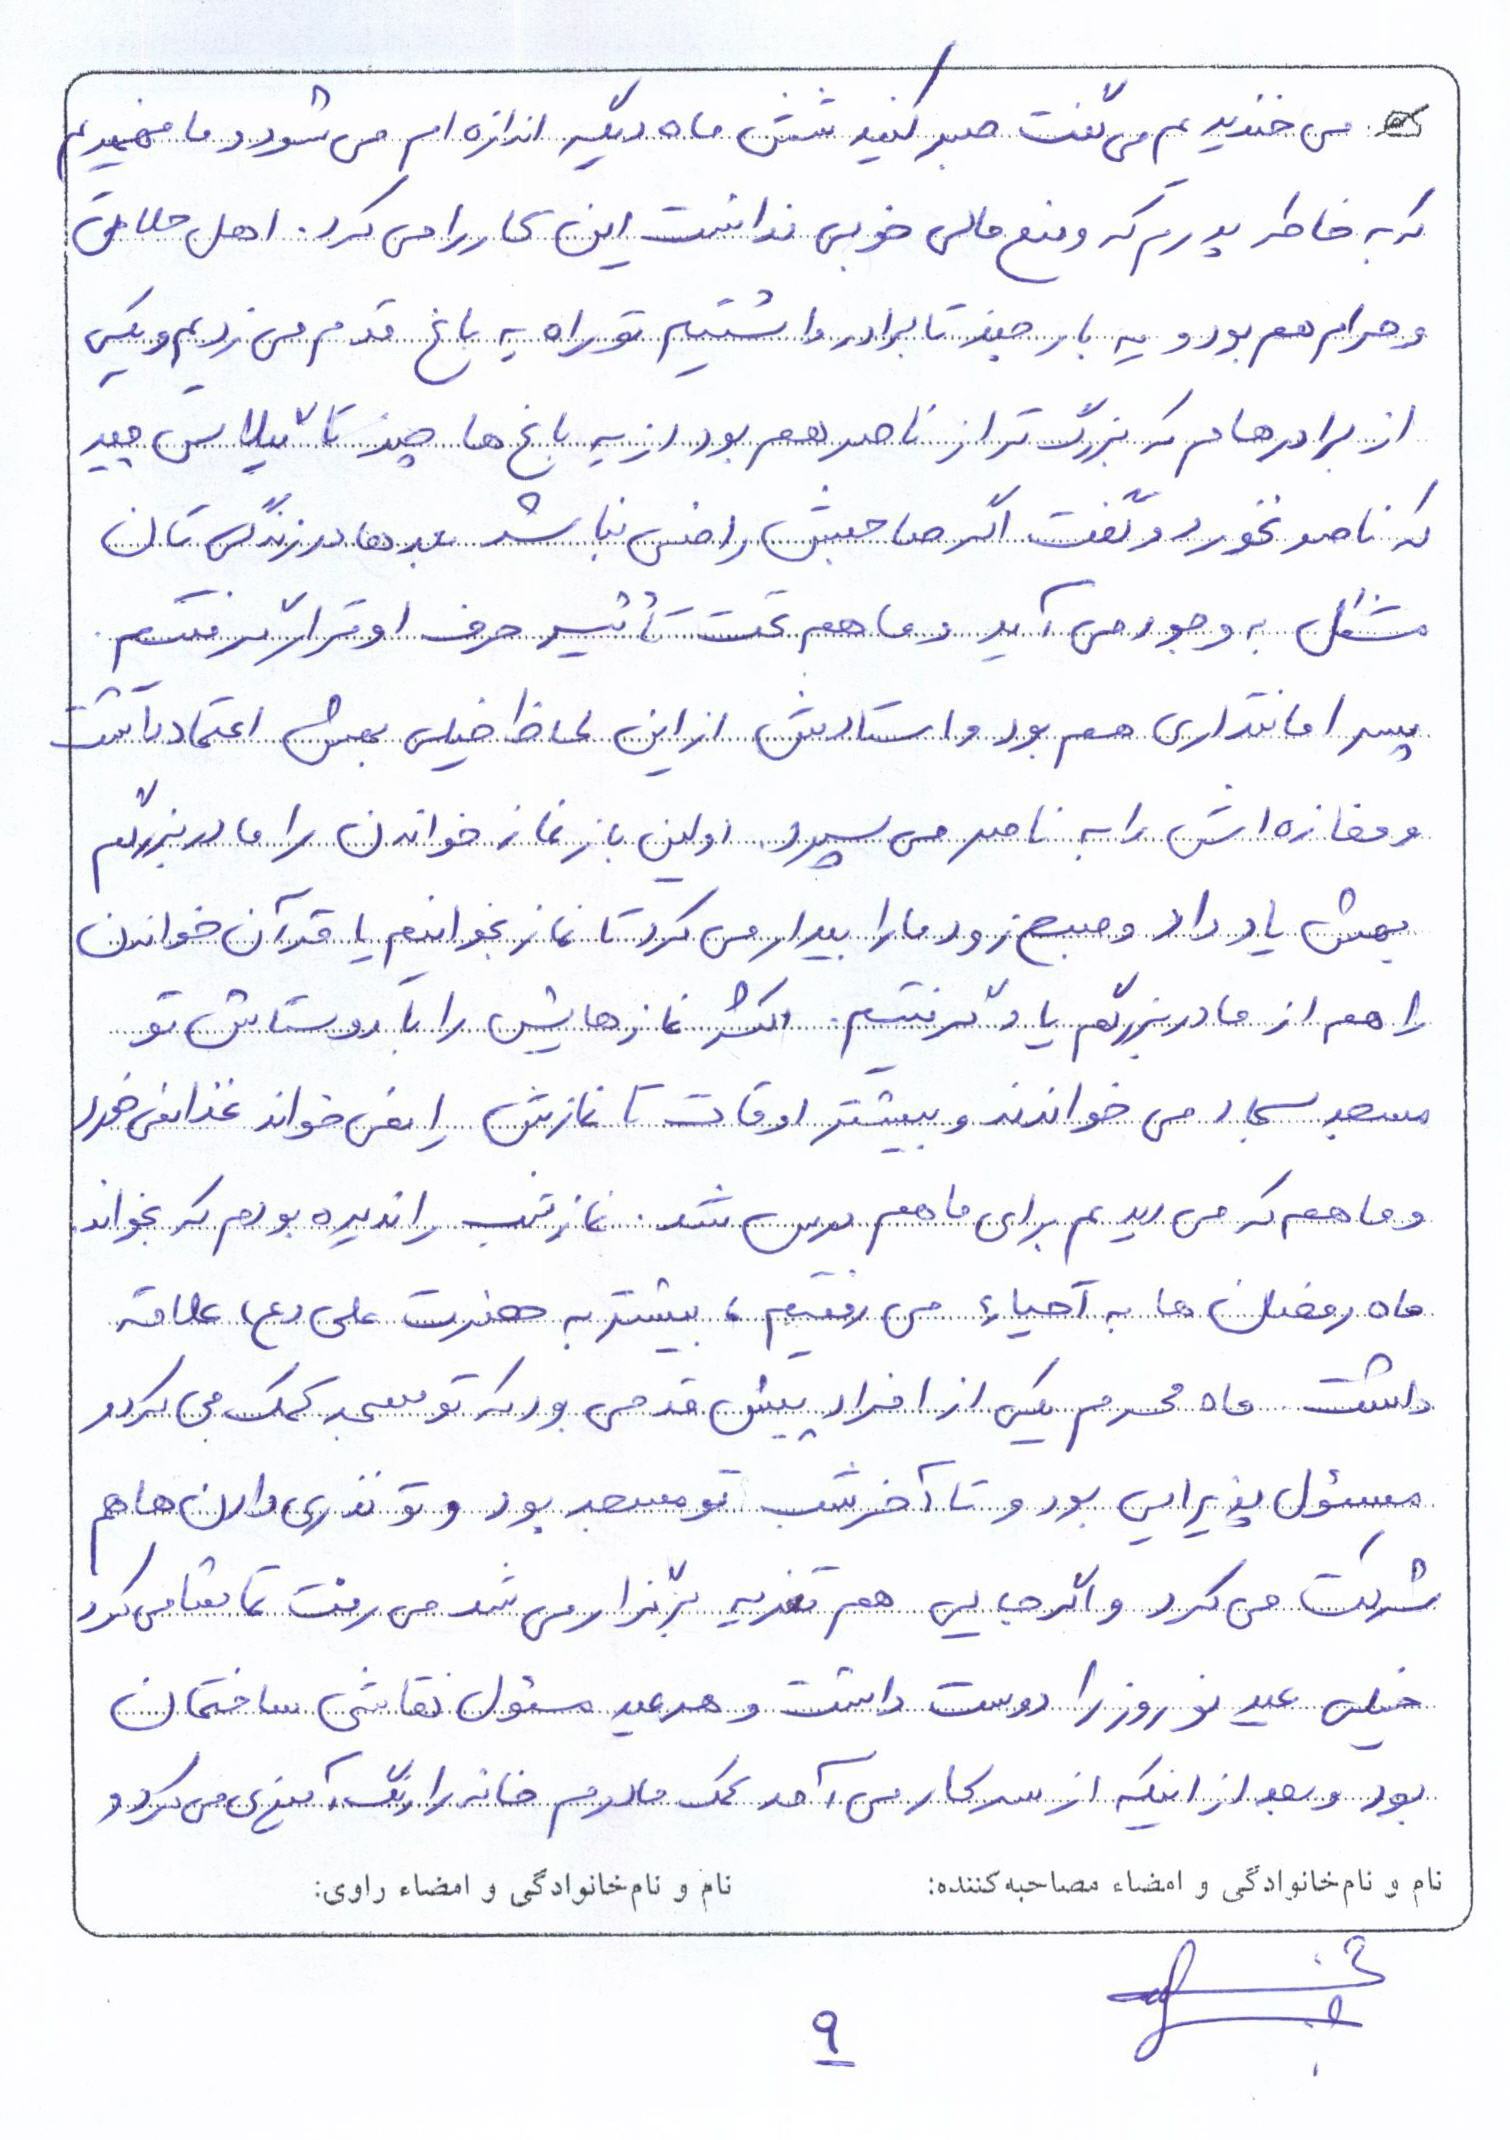 می خندیدیم می گفت صبر کنید شش ماه دیگه اندازه ام می شود و ما می فهمیدیم
که به خاطر پدرم که وضع مالی خوبی نداشت این کار را می کرد. اهل حلالی
و حرام هم بود و یه بار چند تا برادر داشتیم تو راه یه باغ قدم می زدیم و یکی
از برادرهام که بزرگ تر از ناصر هم بود از یه باغ ها چند تا گیلاس چید
که ناصر نخورد و گفت اگر صاحبش راضی نباشد بعدها در زندگی تان
مشکل به وجود می آید و ما هم تحت تأثیر حرف او قرار گرفتیم.
پسر امانتداری هم بود و استادش از این لحاظ خیلی بهش اعتماد داشت
و مغازه اش را به ناصر می سپرد. اولین بار نماز خواندن را مادربزرگم
بهش یاد داد و صبح زود ما را بیدار می کرد تا نماز بخوانیم یا قرآن خواندن
را هم از مادربزرگم یاد گرفتیم. اکثر نمازهایش را با دوستاش تو
مسجد سجاد می خواندند و بیشتر اوقات تا نمازش را نمی خواند غذا نمی خورد
و ما هم که می دیدیم برای ما هم درس شد. نماز شب را ندیده بودم که بخواند.
ماه رمضان ها به احیاء می رفتیم، بیشتر به حضرت علی (ع) علاقه
داشت. ماه محرم یکی از افراد پیش قدمی بود که تو مسجد کمک می کرد و
مسئول پذیرایی بود و تا آخر شب تو مسجد بود و تو نذری دادن ها هم
شرکت می کرد و اگر جایی هم تعزیه برگزار می شد می رفت تماشا می کرد
خیلی عید نوروز را دوست داشت و هر عید مسئول نقاشی ساختمان
بود و بعد از اینکه از سر کار می آمد کمک مادرم خانه را رنگ آمیزی می کرد و
نام و نام‌خانوادگی و امضاء مصاحبه‌کننده: نام و نام‌خانوادگی و امضاء راوی:
۹